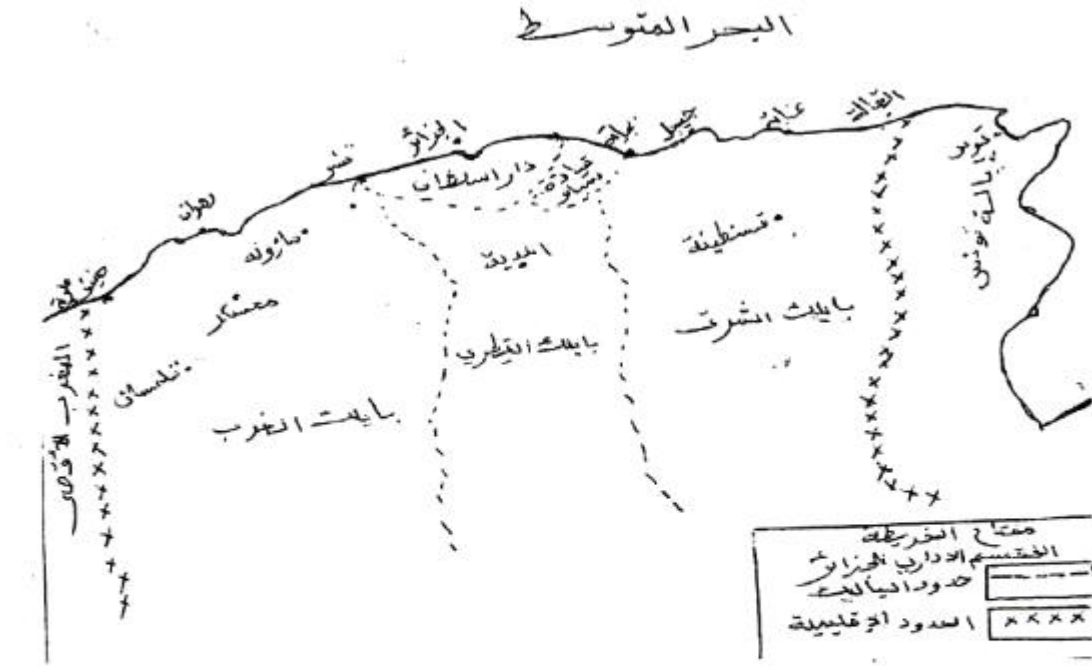 البحر المتوسط
القالة
عنابة
جيجل
بجاية
الجزائر
تنس
وهران
تونس
إيالة تونس
دار السلطان
قيادة سباو
قسنطينة
المدية
مازونة
معسكر
تلمسان
بايلك الشرق
بايلك التيطري
بايلك الغرب
المغرب الأقصى
مفتاح الخريطة
التقسيم الاداري للجزائر
حدود البايلك
الحدود الإقليمية